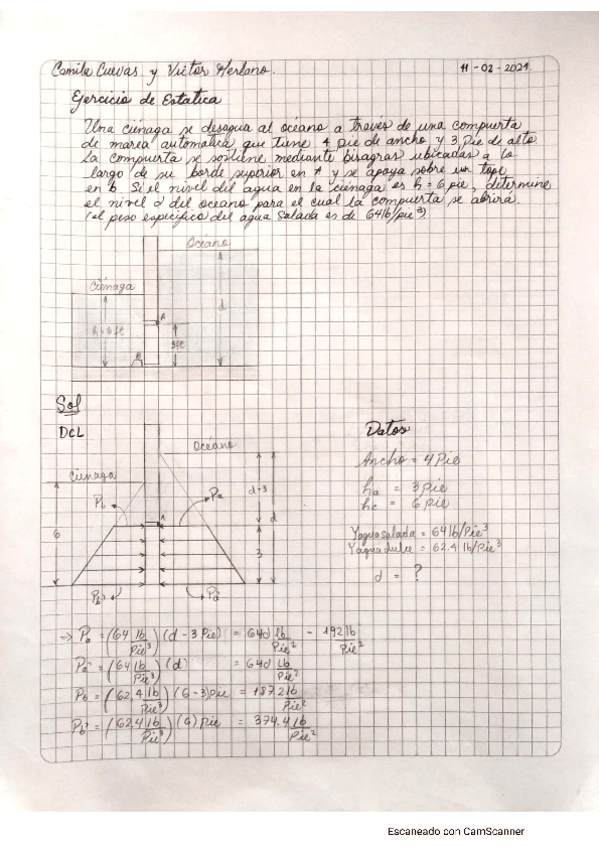 Camila Cuevas y Victor Merlano.
11-02-2021.
Ejercicio de Estatica
Una ciénaga se desagua al océano a través de una compuerta
de marea automática que tiene 4 pie de ancho y 3 Pie de alto
La compuerta se sostiene mediante bisagras ubicadas a lo
largo de su borde superior en A y se apoya sobre un tope
en b. Si el nivel del agua en la ciénaga es h = 6 pie, determine
el nivel d del océano para el cual la compuerta se abrirá.
(el peso específico del agua Salada es de 64lb/pie³)
Océano
Ciénaga
d
h = 6 ft
A
3ft
B
Sol
DCL
Océano
Cienaga
Pb
Pa
d-3
d
A
6
3
Pb'
Pa'
Datos
Ancho = 4 Pie
ha = 3 pie
hc = 6 pie
γagua salada = 64 lb/Pie³
γagua dulce = 62.4 lb/Pie³
d = ?
→ Pa = (64 lb/Pie³) (d - 3 Pie) = 64d lb/Pie² - 192 lb/Pie²
Pa' = (64 lb/Pie³) (d) = 64d Lb/Pie²
Pb = (62,4 lb/Pie³) (6-3) pie = 187.2 lb/Pie²
Pb' = (62.4 lb/Pie³) (6) pie = 374.4 lb/Pie²
Escaneado con CamScanner